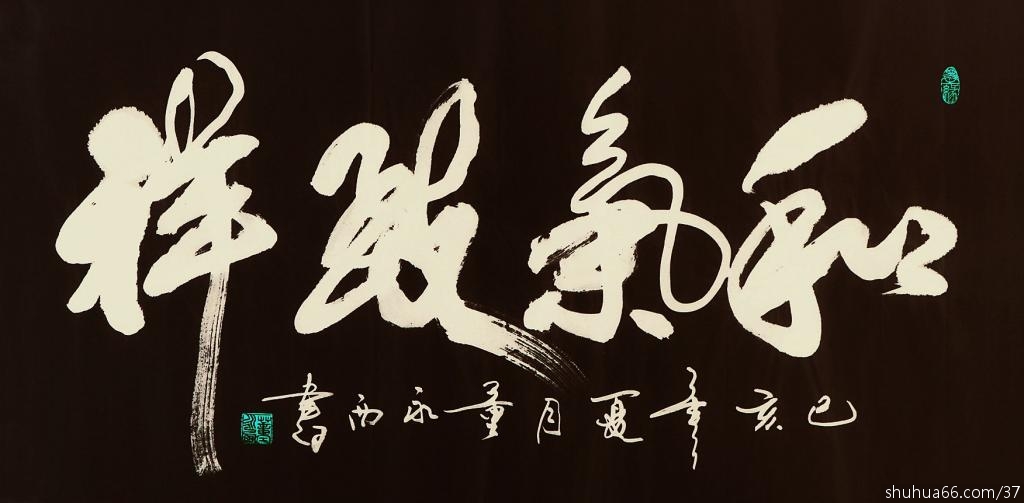 和氣致祥
己亥年夏月董永西書
shuhua66.com/37